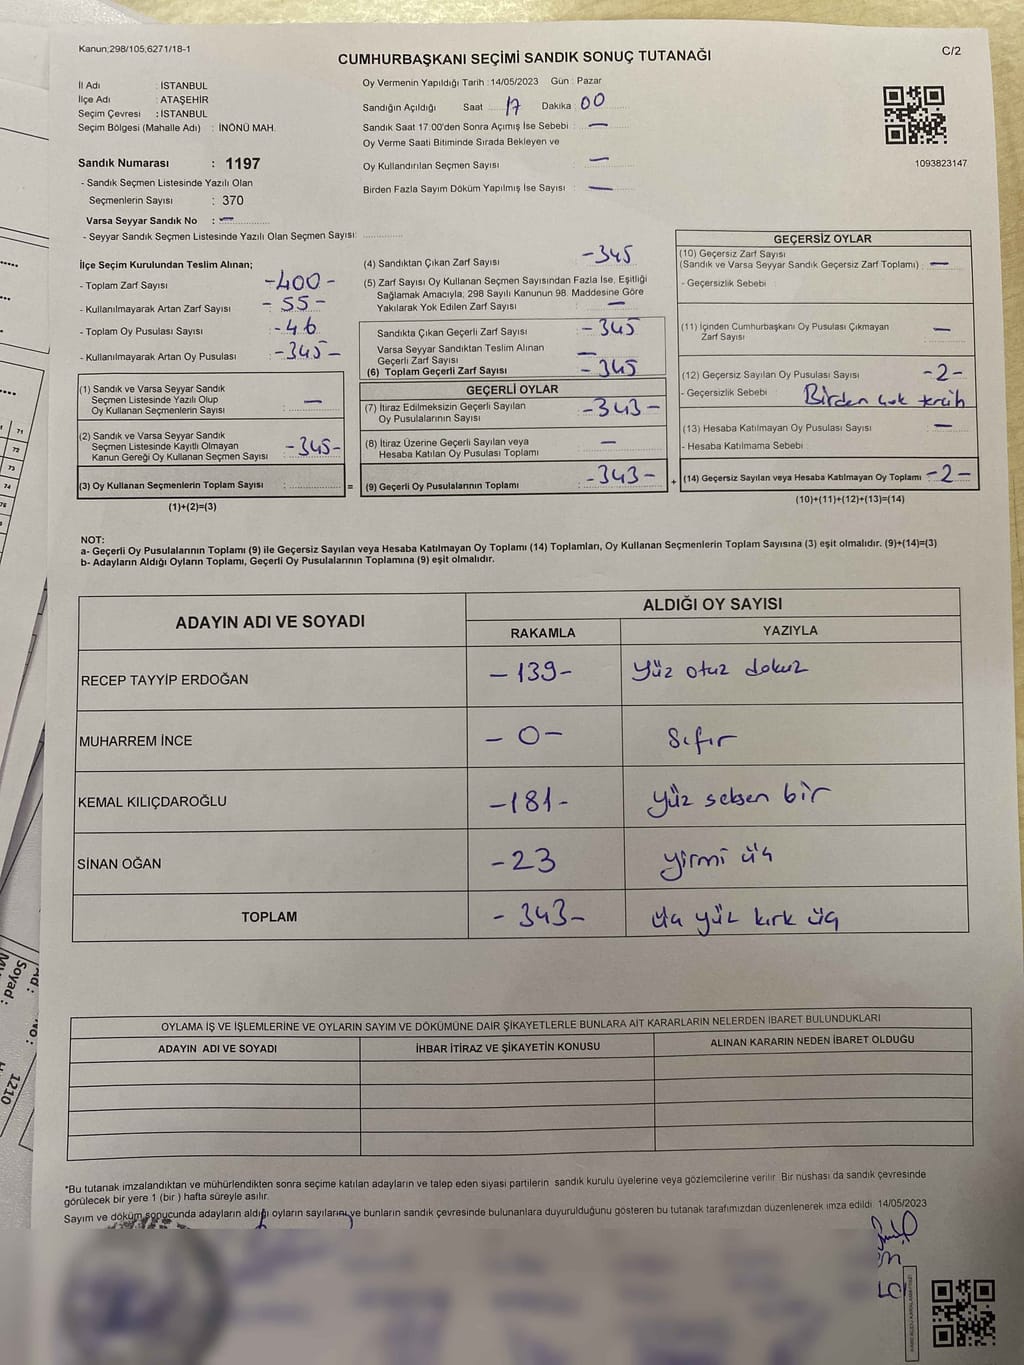 Kanun,298/105,6271/18-1
C/2
CUMHURBAŞKANI SEÇİMİ SANDIK SONUÇ TUTANAĞI
İl Adı : İSTANBUL
İlçe Adı : ATAŞEHİR
Seçim Çevresi : İSTANBUL
Seçim Bölgesi (Mahalle Adı) : İNÖNÜ MAH.
Sandık Numarası : 1197
- Sandık Seçmen Listesinde Yazılı Olan
Seçmenlerin Sayısı : 370
Varsa Seyyar Sandık No : —
- Seyyar Sandık Seçmen Listesinde Yazılı Olan Seçmen Sayısı:
Oy Vermenin Yapıldığı Tarih : 14/05/2023 Gün : Pazar
Sandığın Açıldığı Saat 17 Dakika 00
Sandık Saat 17:00'den Sonra Açımış İse Sebebi : —
Oy Verme Saati Bitiminde Sırada Bekleyen ve
Oy Kullandırılan Seçmen Sayısı : —
Birden Fazla Sayım Döküm Yapılmış İse Sayısı : —
1093823147
İlçe Seçim Kurulundan Teslim Alınan;
- Toplam Zarf Sayısı : -400-
- Kullanılmayarak Artan Zarf Sayısı : -55-
- Toplam Oy Pusulası Sayısı : -46
- Kullanılmayarak Artan Oy Pusulası : -345-
(1) Sandık ve Varsa Seyyar Sandık
Seçmen Listesinde Yazılı Olup
Oy Kullanan Seçmenlerin Sayısı : —
(2) Sandık ve Varsa Seyyar Sandık
Seçmen Listesinde Kayıtlı Olmayan
Kanun Gereği Oy Kullanan Seçmen Sayısı : -345-
(3) Oy Kullanan Seçmenlerin Toplam Sayısı : =
(1)+(2)=(3)
(4) Sandıktan Çıkan Zarf Sayısı : -345
(5) Zarf Sayısı Oy Kullanan Seçmen Sayısından Fazla İse, Eşitliği
Sağlamak Amacıyla, 298 Sayılı Kanunun 98. Maddesine Göre
Yakılarak Yok Edilen Zarf Sayısı : —
Sandıkta Çıkan Geçerli Zarf Sayısı : -345
Varsa Seyyar Sandıktan Teslim Alınan
Geçerli Zarf Sayısı : —
(6) Toplam Geçerli Zarf Sayısı : -345
GEÇERLİ OYLAR
(7) İtiraz Edilmeksizin Geçerli Sayılan
Oy Pusulalarının Sayısı : -343-
(8) İtiraz Üzerine Geçerli Sayılan veya
Hesaba Katılan Oy Pusulası Toplamı : —
(9) Geçerli Oy Pusulalarının Toplamı : -343- +
GEÇERSİZ OYLAR
(10) Geçersiz Zarf Sayısı
(Sandık ve Varsa Seyyar Sandık Geçersiz Zarf Toplamı) : —
- Geçersizlik Sebebi :
(11) İçinden Cumhurbaşkanı Oy Pusulası Çıkmayan
Zarf Sayısı : —
(12) Geçersiz Sayılan Oy Pusulası Sayısı : -2-
- Geçersizlik Sebebi : Birden çok tercih
(13) Hesaba Katılmayan Oy Pusulası Sayısı : —
- Hesaba Katılmama Sebebi :
(14) Geçersiz Sayılan veya Hesaba Katılmayan Oy Toplamı : -2-
(10)+(11)+(12)+(13)=(14)
NOT:
a- Geçerli Oy Pusulalarının Toplamı (9) ile Geçersiz Sayılan veya Hesaba Katılmayan Oy Toplamı (14) Toplamları, Oy Kullanan Seçmenlerin Toplam Sayısına (3) eşit olmalıdır. (9)+(14)=(3)
b- Adayların Aldığı Oyların Toplamı, Geçerli Oy Pusulalarının Toplamına (9) eşit olmalıdır.
ADAYIN ADI VE SOYADI ALDIĞI OY SAYISI
RAKAMLA YAZIYLA
RECEP TAYYİP ERDOĞAN -139- Yüz otuz dokuz
MUHARREM İNCE -0- Sıfır
KEMAL KILIÇDAROĞLU -181- Yüz seksen bir
SİNAN OĞAN -23 yirmi üç
TOPLAM -343- üç yüz kırk üç
OYLAMA İŞ VE İŞLEMLERİNE VE OYLARIN SAYIM VE DÖKÜMÜNE DAİR ŞİKAYETLERLE BUNLARA AİT KARARLARIN NELERDEN İBARET BULUNDUKLARI
ADAYIN ADI VE SOYADI İHBAR İTİRAZ VE ŞİKAYETİN KONUSU ALINAN KARARIN NEDEN İBARET OLDUĞU
*Bu tutanak imzalandıktan ve mühürlendikten sonra seçime katılan adayların ve talep eden siyasi partilerin sandık kurulu üyelerine veya gözlemcilerine verilir. Bir nüshası da sandık çevresinde
görülecek bir yere 1 (bir ) hafta süreyle asılır.
Sayım ve döküm sonucunda adayların aldığı oyların sayılarını ve bunların sandık çevresinde bulunanlara duyurulduğunu gösteren bu tutanak tarafımızdan düzenlenerek imza edildi. 14/05/2023
71
72
73
74
Soyad :
1210